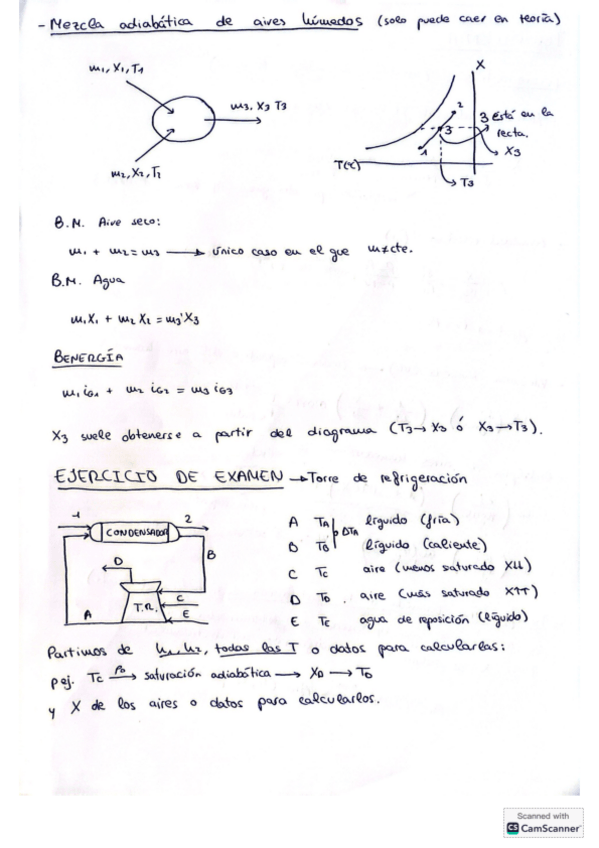 - Mezcla adiabática de aires húmedos (solo puede caer en teoría)
m1, X1, T1
m3, X3 T3
m2, X2, T2
X
2
3
1
3 Está en la recta.
X3
T(ºC)
T3
B.M. Aire seco:
m1 + m2 = m3 → único caso en el que m≠cte.
B.M. Agua
m1X1 + m2 X2 = m3 X3
BENERGÍA
m1 iG1 + m2 iG2 = m3 iG3
X3 suele obtenerse a partir del diagrama (T3→ X3 ó X3→T3).
EJERCICIO DE EXAMEN → Torre de refrigeración
1
CONDENSADOR
2
B
D
T.R.
C
E
A
A TA líquido (fría)
DTA
B TB líquido (caliente)
C TC aire (menos saturado X↓↓)
D TD . aire (más saturado X↑↑)
E TE agua de reposición (líquido)
Partimos de h1, h2, todas las T o datos para calcularlas:
p ej. TC → saturación adiabática → XD → TD
y X de los aires o datos para calcularlos.
Scanned with
CS CamScanner